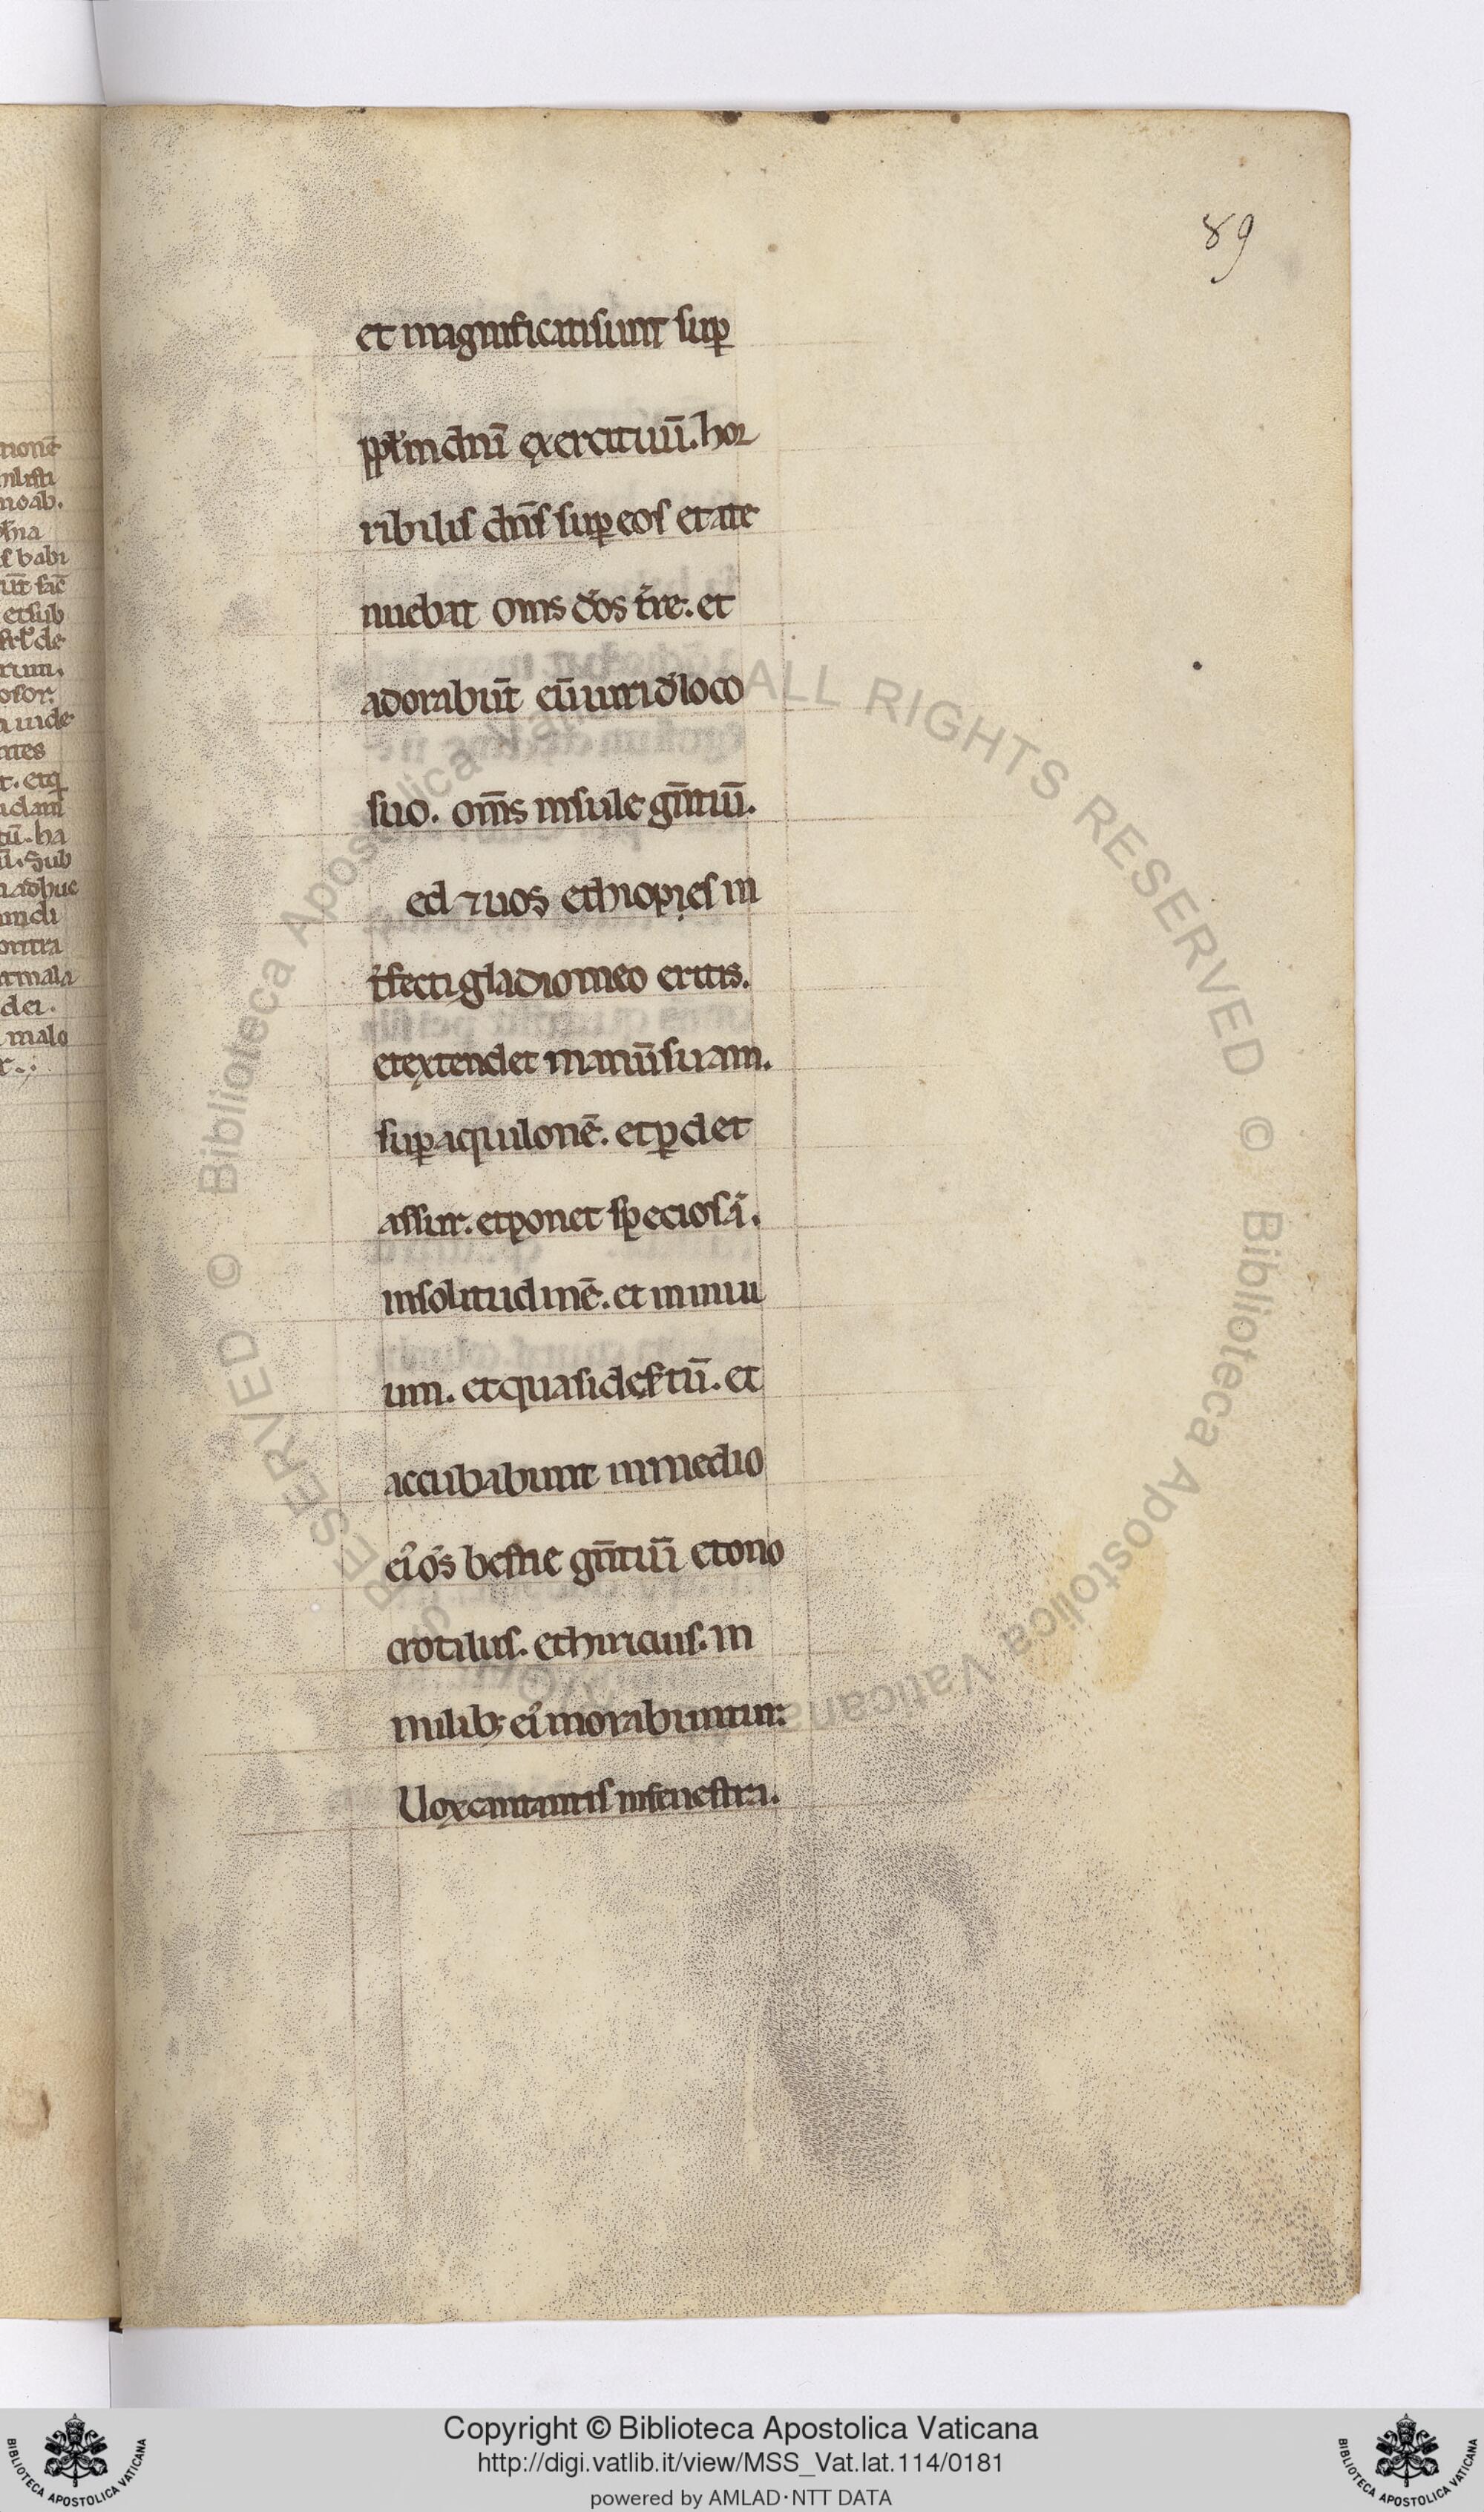 89
et magnificati sunt sup
pplm dnī exercituū. hor
ribilis dn̄s sup eos et atte
nuebat om̄s d̓os tr̄e. et
adorabūt eū uiri d̓ loco
suo. om̄s insule gn̄tiū.
ed ⁊ uos ethiopes in
t̓fecti gladio meo eritis.
et extendet manū suam.
sup aquilonē. et pdet
assur. et ponet speciosā.
in solitudinē. et in inui
um. et quasi desertū. et
accubabunt in medio
ei᷒ om̄s bestie gn̄tiū et ono
crotilus. et hiricius. in
milib; ei᷒ morabuntur.
Uox cantantis in fenestra.
tionē
moab.
babi
et sub
de
tites
ha
Sub
adhuc
ontra
mala
dei.
malo
© Biblioteca Apostolica Vaticana ALL RIGHTS RESERVED © Biblioteca Apostolica Vaticana
Copyright © Biblioteca Apostolica Vaticana
http://digi.vatlib.it/view/MSS_Vat.lat.114/0181
powered by AMLAD·NTT DATA
BIBLIOTECA APOSTOLICA VATICANA
BIBLIOTECA APOSTOLICA VATICANA